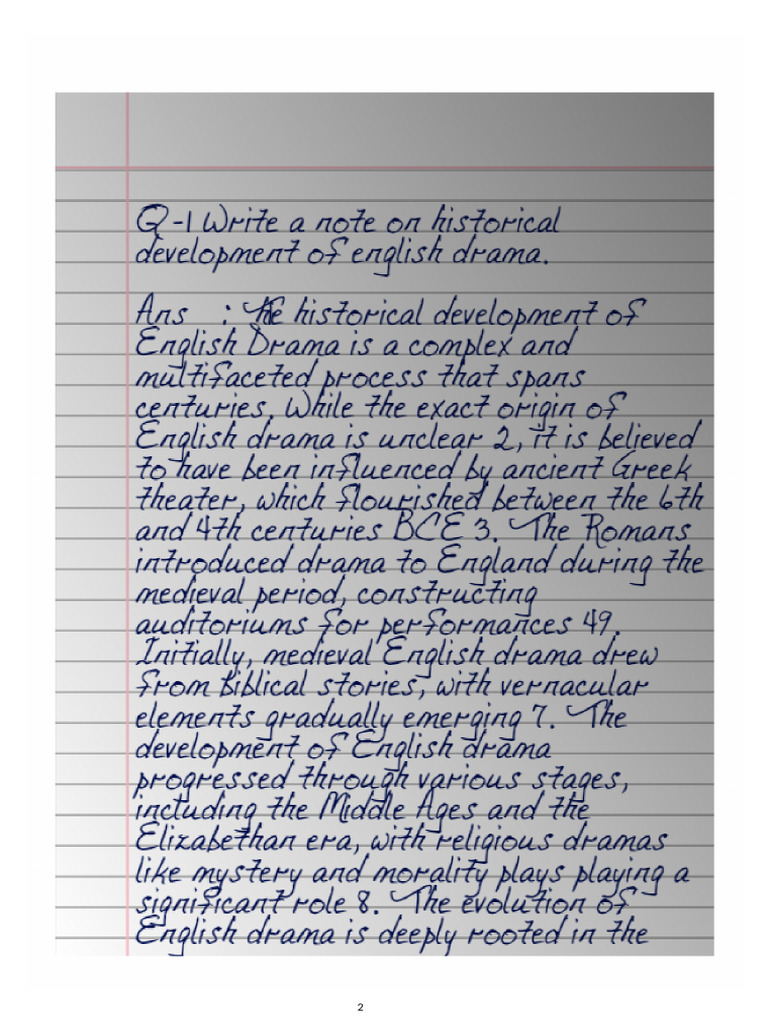 Q -1 Write a note on historical
development of english drama.
Ans : The historical development of
English Drama is a complex and
multifaceted process that spans
centuries. While the exact origin of
English drama is unclear 2, it is believed
to have been influenced by ancient Greek
theater, which flourished between the 6th
and 4th centuries BCE 3. The Romans
introduced drama to England during the
medieval period, constructing
auditoriums for performances 49.
Initially, medieval English drama drew
from Biblical stories, with vernacular
elements gradually emerging 7. The
development of English drama
progressed through various stages,
including the Middle Ages and the
Elizabethan era, with religious dramas
like mystery and morality plays playing a
significant role 8. The evolution of
English drama is deeply rooted in the
2